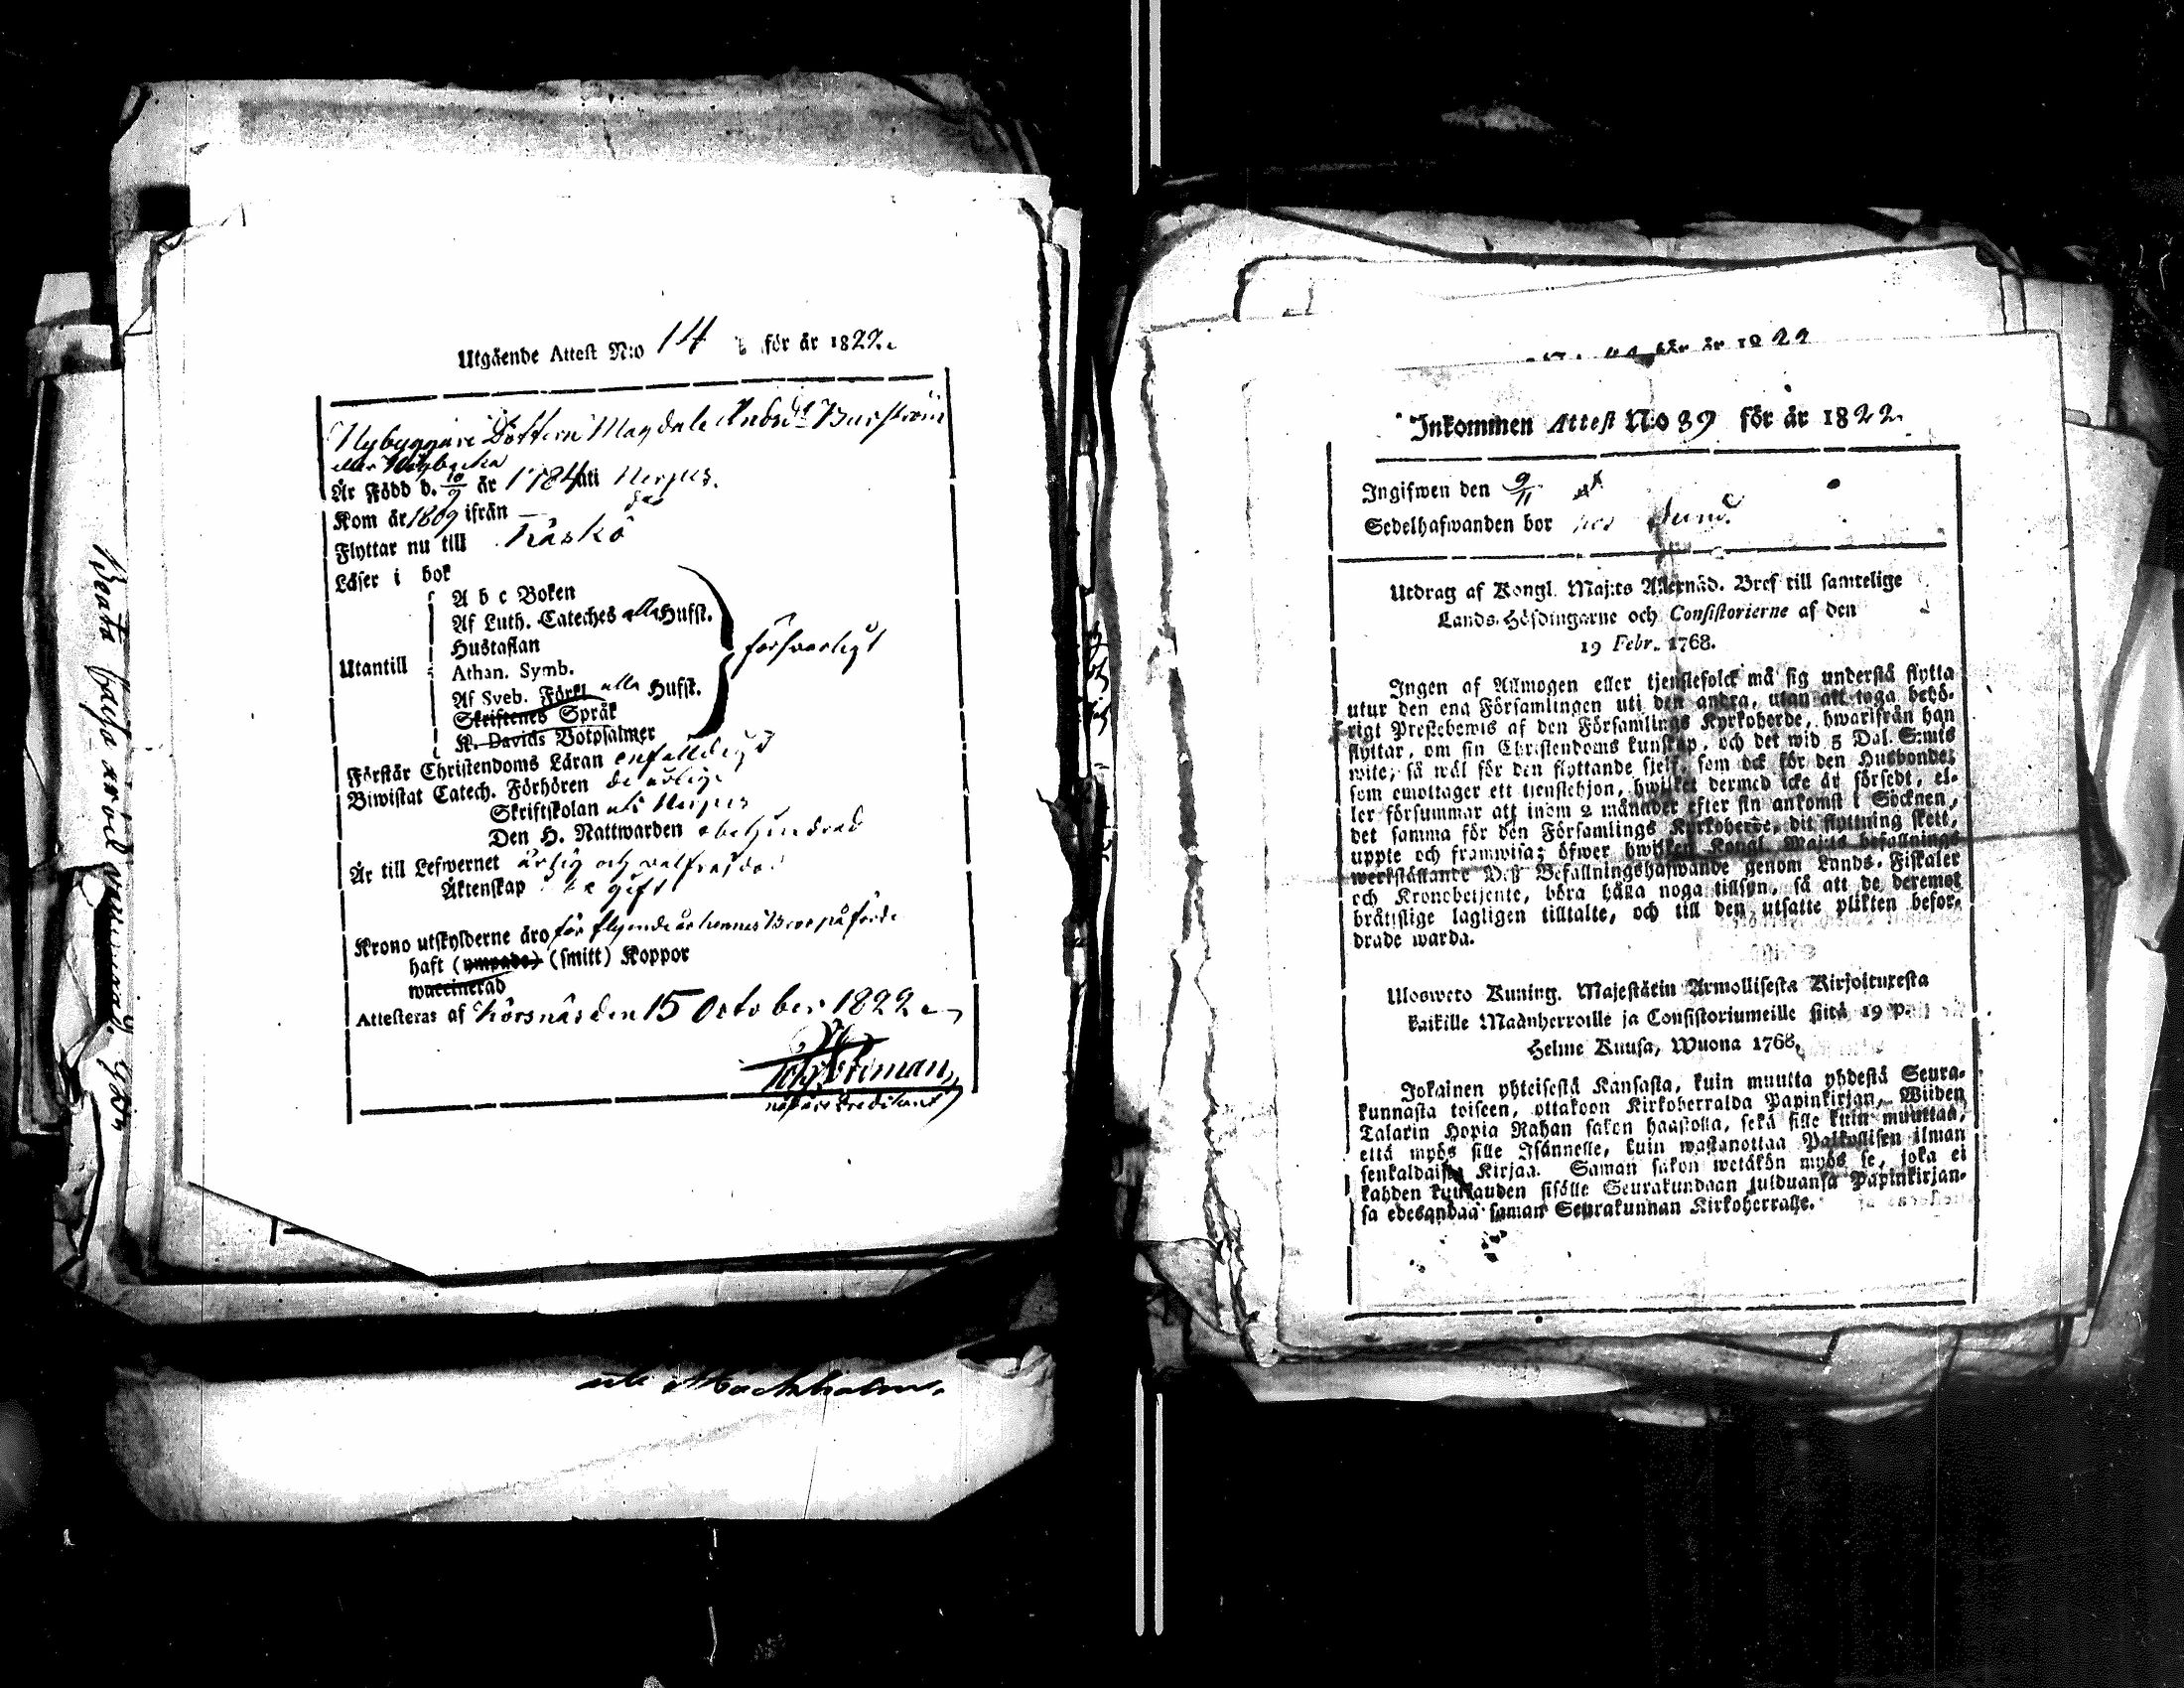 Utgående Attest N:o 14 för år 1822.
Nybyggare Dottern Magdale Andrsdt Burström
eller
Är Född d. 10/9 år 1784 uti Nerpes.
Kom år 1809 ifrån —
Flyttar nu till Kaskö
Läser i bok
A b c Boken
Af Luth. Cateches alla Hufst.
Hustaflan
Utantill
Athan. Symb.
Af Sveb. Förkl alla Hufst.
Skriftenes Språk
K. Davids Botpsalmer
försvarligt
Förstår Christendoms Läran enfalldigt
Biwistat Catech. Förhören de årlige
Skriftskolan uti Nerpes
Den H. Nattwarden obehindrad
Är till Lefwernet ärlig och välfrejdad
Äktenskap ogift
Krono utskylderne äro för flyende år hennes Bror påförde
haft (ympade) (smitt) Koppor
waccinerad
Attesteras af Körsnäs den 15 October 1822
Beata
till Stockholm.
för år 1822
Inkommen Attest N:o 39 för år 1822
Ingifwen den 9/11
Sedelhafwanden bor hos Sund.
Utdrag af Kongl. Maj:ts Allernåd. Bref till samtelige
Lands-Höfdingarne och Consistorierne af den
19 Febr. 1768.
Ingen af Allmogen eller tjenstefolck må sig understå flytta
utur den ena Församlingen uti den andra, utan att taga behö-
rigt Prestebewis af den Församlings Kyrkoherde, hwarifrån han
flyttar, om sin Christendoms kunskap, och det wid 5 Dal. S:mts
wite; så wäl för den flyttande sjelf, som ock för den Husbonde
som emottager ett tjenstehjon, hwilket dermed icke är försedt, el-
ler försummar att inom 2 månader efter sin ankomst i Socknen,
det samma för den Församlings Kyrkoherde, dit flyttning skett,
uppte och framwisa; öfwer hwilken Kongl. Maj:ts befallnings
werkställande Deß Befallningshafwande genom Lands-Fiskaler
och Kronobetjente, böra hålla noga tillsyn, så att de deremot
bråttslige lagligen tilltalte, och till den utsatte plikten befor-
drade warda.
Ulosweto Kuning. Majestätin Armollisesta Kirjoituxesta
kaikille Maanherroille ja Consistoriumeille siitä 19 p.
Helme Kuusa, Wuona 1768.
Jokainen yhteisestä Kansasta, kuin muutta yhdestä Seura-
kunnasta toiseen, ottakoon Kirkoherralda Papinkirjan, Wiiden
Talarin Hopia Rahan sakon haastolla, sekä sille kuin muuttaa,
että myös sille Isännelle, kuin wastanottaa Palkollisen ilman
senkaldaista Kirjaa. Saman sakon wetäkön myös se, joka ei
kahden kuukauden sisälle Seurakundaan tulduansa Papinkirjan-
sa edesandaa saman Seurakunnan Kirkoherralle.